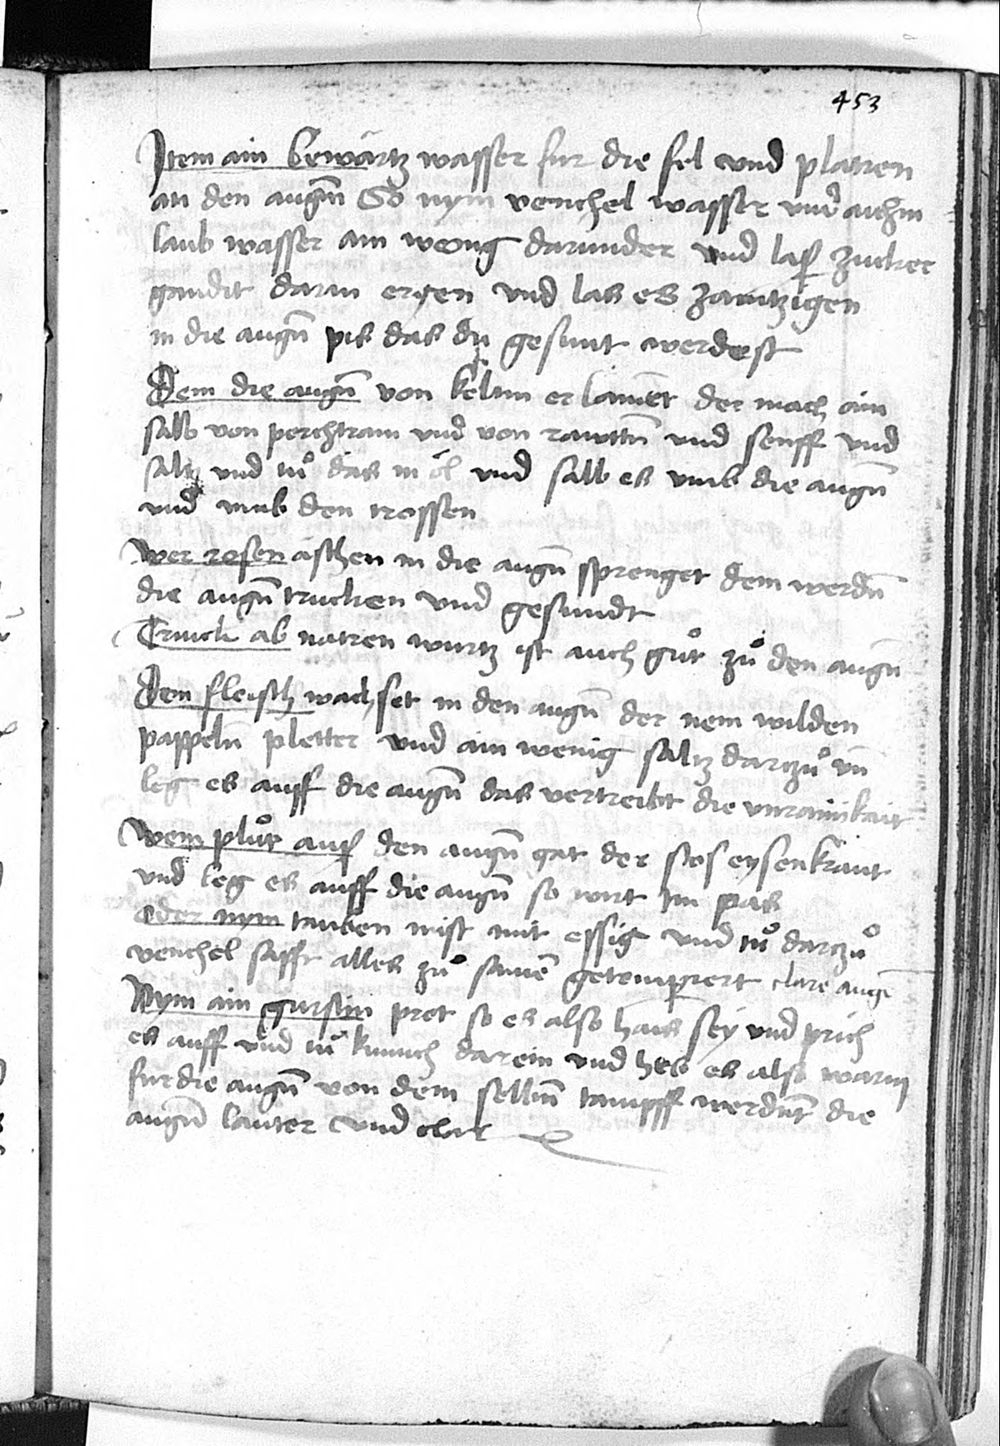 453
Item ain bewärtz wasser fur die fel und platren
an den augñ So nym venchel wasser und aichin
laub wasser ain weong darunder und las zucker
gandit darin ergen und las es zanitzigen
in die augñ pis das du gesunt werdest
Dem die augñ von keltin erlamēt der mach ain
salb von perchtram und von rawttñ und senff und
saltz und tuͦ das in öl und salb es umb die augñ
und umb den trossen
Wer rosen äschen in die augñ sprenget dem werdñ
die augñ trucken und gesundt
Trinck ab natren wurtz ist auch guͦt zuͦ den augñ
Dem fleisch wachset in den augñ der nem wilden
pappelñ pletter und ain wenig saltz darczuͦ vñ
leg es auff die augñ das vertreibt die unrainikait
Wem pluͦt aus den augñ gat der stos eysenkraut
und leg es auff die augñ so wirt im pas
Oder nym tauben mist mit essig und tuͦ darczuͦ
venchel safft alles zuͦ samē getempiert clare augē
Nym ain gurstin prot so es also hais seÿ und prich
es auff und tuͦ kumich darein und heb es also warm
fur die augñ von dem sellbñ tampff werdñt die
augñ lauter und clar